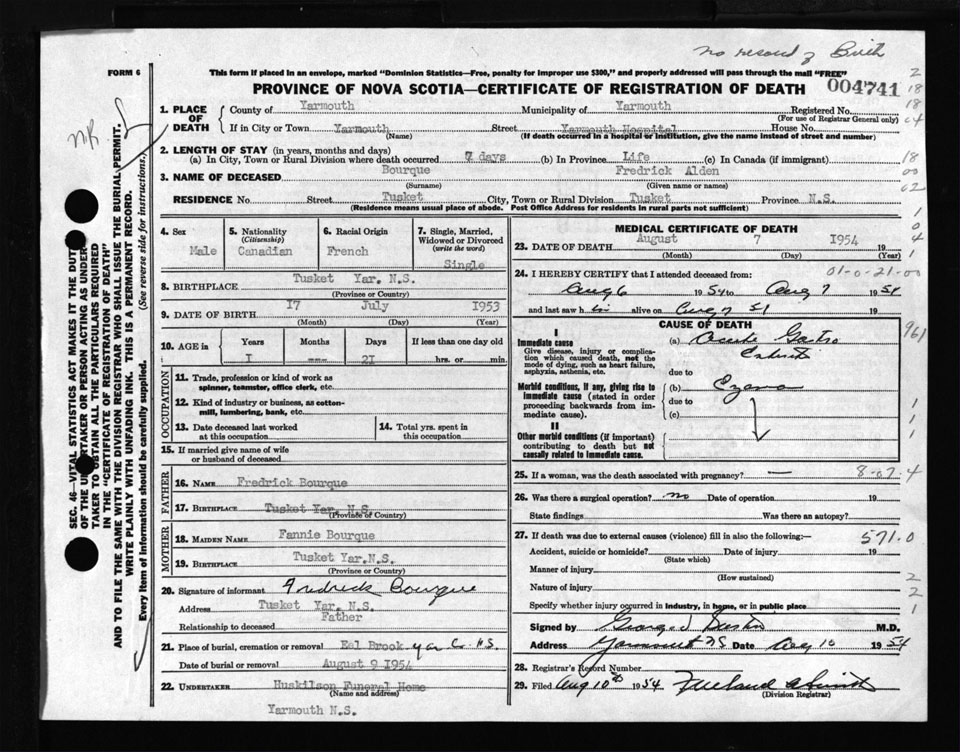 no record of Birth
FORM 6
This form if placed in an envelope, marked "Dominion Statistics—Free, penalty for improper use $300," and properly addressed will pass through the mail "FREE"
PROVINCE OF NOVA SCOTIA—CERTIFICATE OF REGISTRATION OF DEATH
004741
N.R.
SEC. 46—VITAL STATISTICS ACT MAKES IT THE DUTY
OF THE UNDERTAKER OR PERSON ACTING AS UNDER-
TAKER TO OBTAIN ALL THE PARTICULARS REQUIRED
IN THE "CERTIFICATE OF REGISTRATION OF DEATH"
AND TO FILE THE SAME WITH THE DIVISION REGISTRAR WHO SHALL ISSUE THE BURIAL PERMIT.
WRITE PLAINLY WITH UNFADING INK. THIS IS A PERMANENT RECORD.
Every item of information should be carefully supplied. (See reverse side for instructions.)
1. PLACE OF DEATH
County of Yarmouth Municipality of Yarmouth Registered No.
(For use of Registrar General only)
If in City or Town Yarmouth Street Yarmouth Hospital House No.
(Name) (If death occurred in a hospital or institution, give the name instead of street and number)
2. LENGTH OF STAY (in years, months and days)
(a) In City, Town or Rural Division where death occurred 7 days (b) In Province Life (c) In Canada (if immigrant)
3. NAME OF DECEASED Bourque Fredrick Alden
(Surname) (Given name or names)
RESIDENCE No Street Tusket City, Town or Rural Division Tusket Province N.S.
(Residence means usual place of abode. Post Office Address for residents in rural parts not sufficient)
2
18
18
04
18
00
02
1
0
4
1
4. Sex
Male
5. Nationality
(Citizenship)
Canadian
6. Racial Origin
French
7. Single, Married,
Widowed or Divorced
(write the word)
Single
8. BIRTHPLACE Tusket Yar. N.S.
(Province or Country)
9. DATE OF BIRTH I7 July 1953
(Month) (Day) (Year)
10. AGE in
Years
I
Months
----
Days
2I
If less than one day old
hrs. or min.
OCCUPATION
11. Trade, profession or kind of work as
spinner, teamster, office clerk, etc.
12. Kind of industry or business, as cotton-
mill, lumbering, bank, etc.
13. Date deceased last worked
at this occupation
14. Total yrs. spent in
this occupation
15. If married give name of wife
or husband of deceased
FATHER
16. NAME Fredrick Bourque
17. BIRTHPLACE Tusket Yar. N.S.
(Province or Country)
MOTHER
18. MAIDEN NAME Fannie Bourque
19. BIRTHPLACE Tusket Yar.N.S.
(Province or Country)
20. Signature of informant Fredrick Bourque
Address Tusket Yar. N.S.
Relationship to deceased Father
21. Place of burial, cremation or removal Eel Brook Yar Co. N.S.
Date of burial or removal August 9 I954
22. UNDERTAKER Huskilson Funeral Home
(Name and address)
Yarmouth N.S.
MEDICAL CERTIFICATE OF DEATH
23. DATE OF DEATH August 7 I954 19
(Month) (Day) (Year)
01-0-21-00
24. I HEREBY CERTIFY that I attended deceased from:
Aug 6 1954 to Aug 7 1954
and last saw h im alive on Aug 7 51
CAUSE OF DEATH
I
Immediate cause
Give disease, injury or complica-
tion which caused death, not the
mode of dying, such as heart failure,
asphyxia, asthenia, etc.
(a) Acute Gastro
due to
Morbid conditions, if any, giving rise to
immediate cause (stated in order
proceeding backwards from im-
mediate cause).
(b)
due to
(c)
II
Other morbid conditions (if important)
contributing to death but not
causally related to immediate cause.
961
1
1
1
25. If a woman, was the death associated with pregnancy? —
8-07.4
26. Was there a surgical operation? no Date of operation 19
State findings Was there an autopsy?
27. If death was due to external causes (violence) fill in also the following:— 571.0
Accident, suicide or homicide? Date of injury 19
(State which)
Manner of injury
(How sustained)
Nature of injury
Specify whether injury occurred in industry, in home, or in public place
2
2
1
Signed by George M.D.
Address Yarmouth NS Date Aug 10 1954
28. Registrar's Record Number
29. Filed Aug 10th 1954
(Division Registrar)